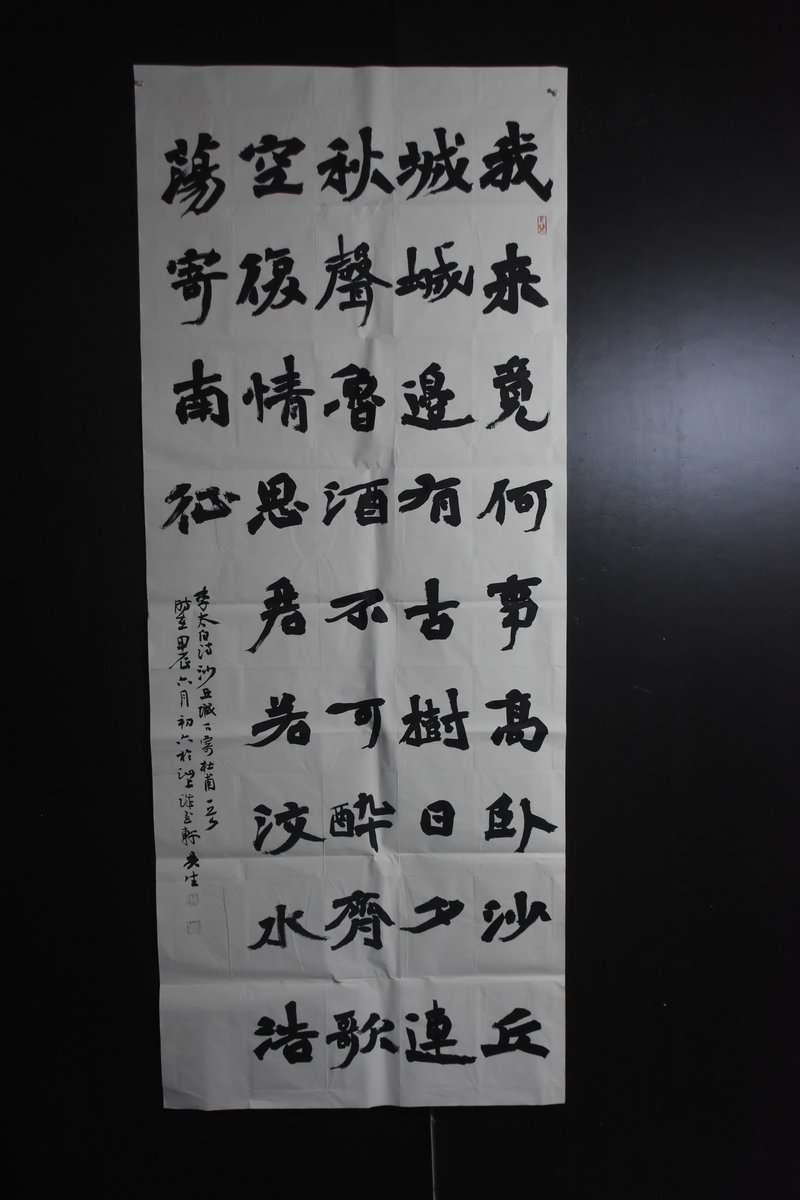 我来竟何事高卧沙丘
城城邊有古樹日夕連
秋聲魯酒不可酔齊歌
空復情思君若汶水浩
蕩寄南征
李太白诗沙丘城下寄杜甫一首
时在甲辰六月初六於